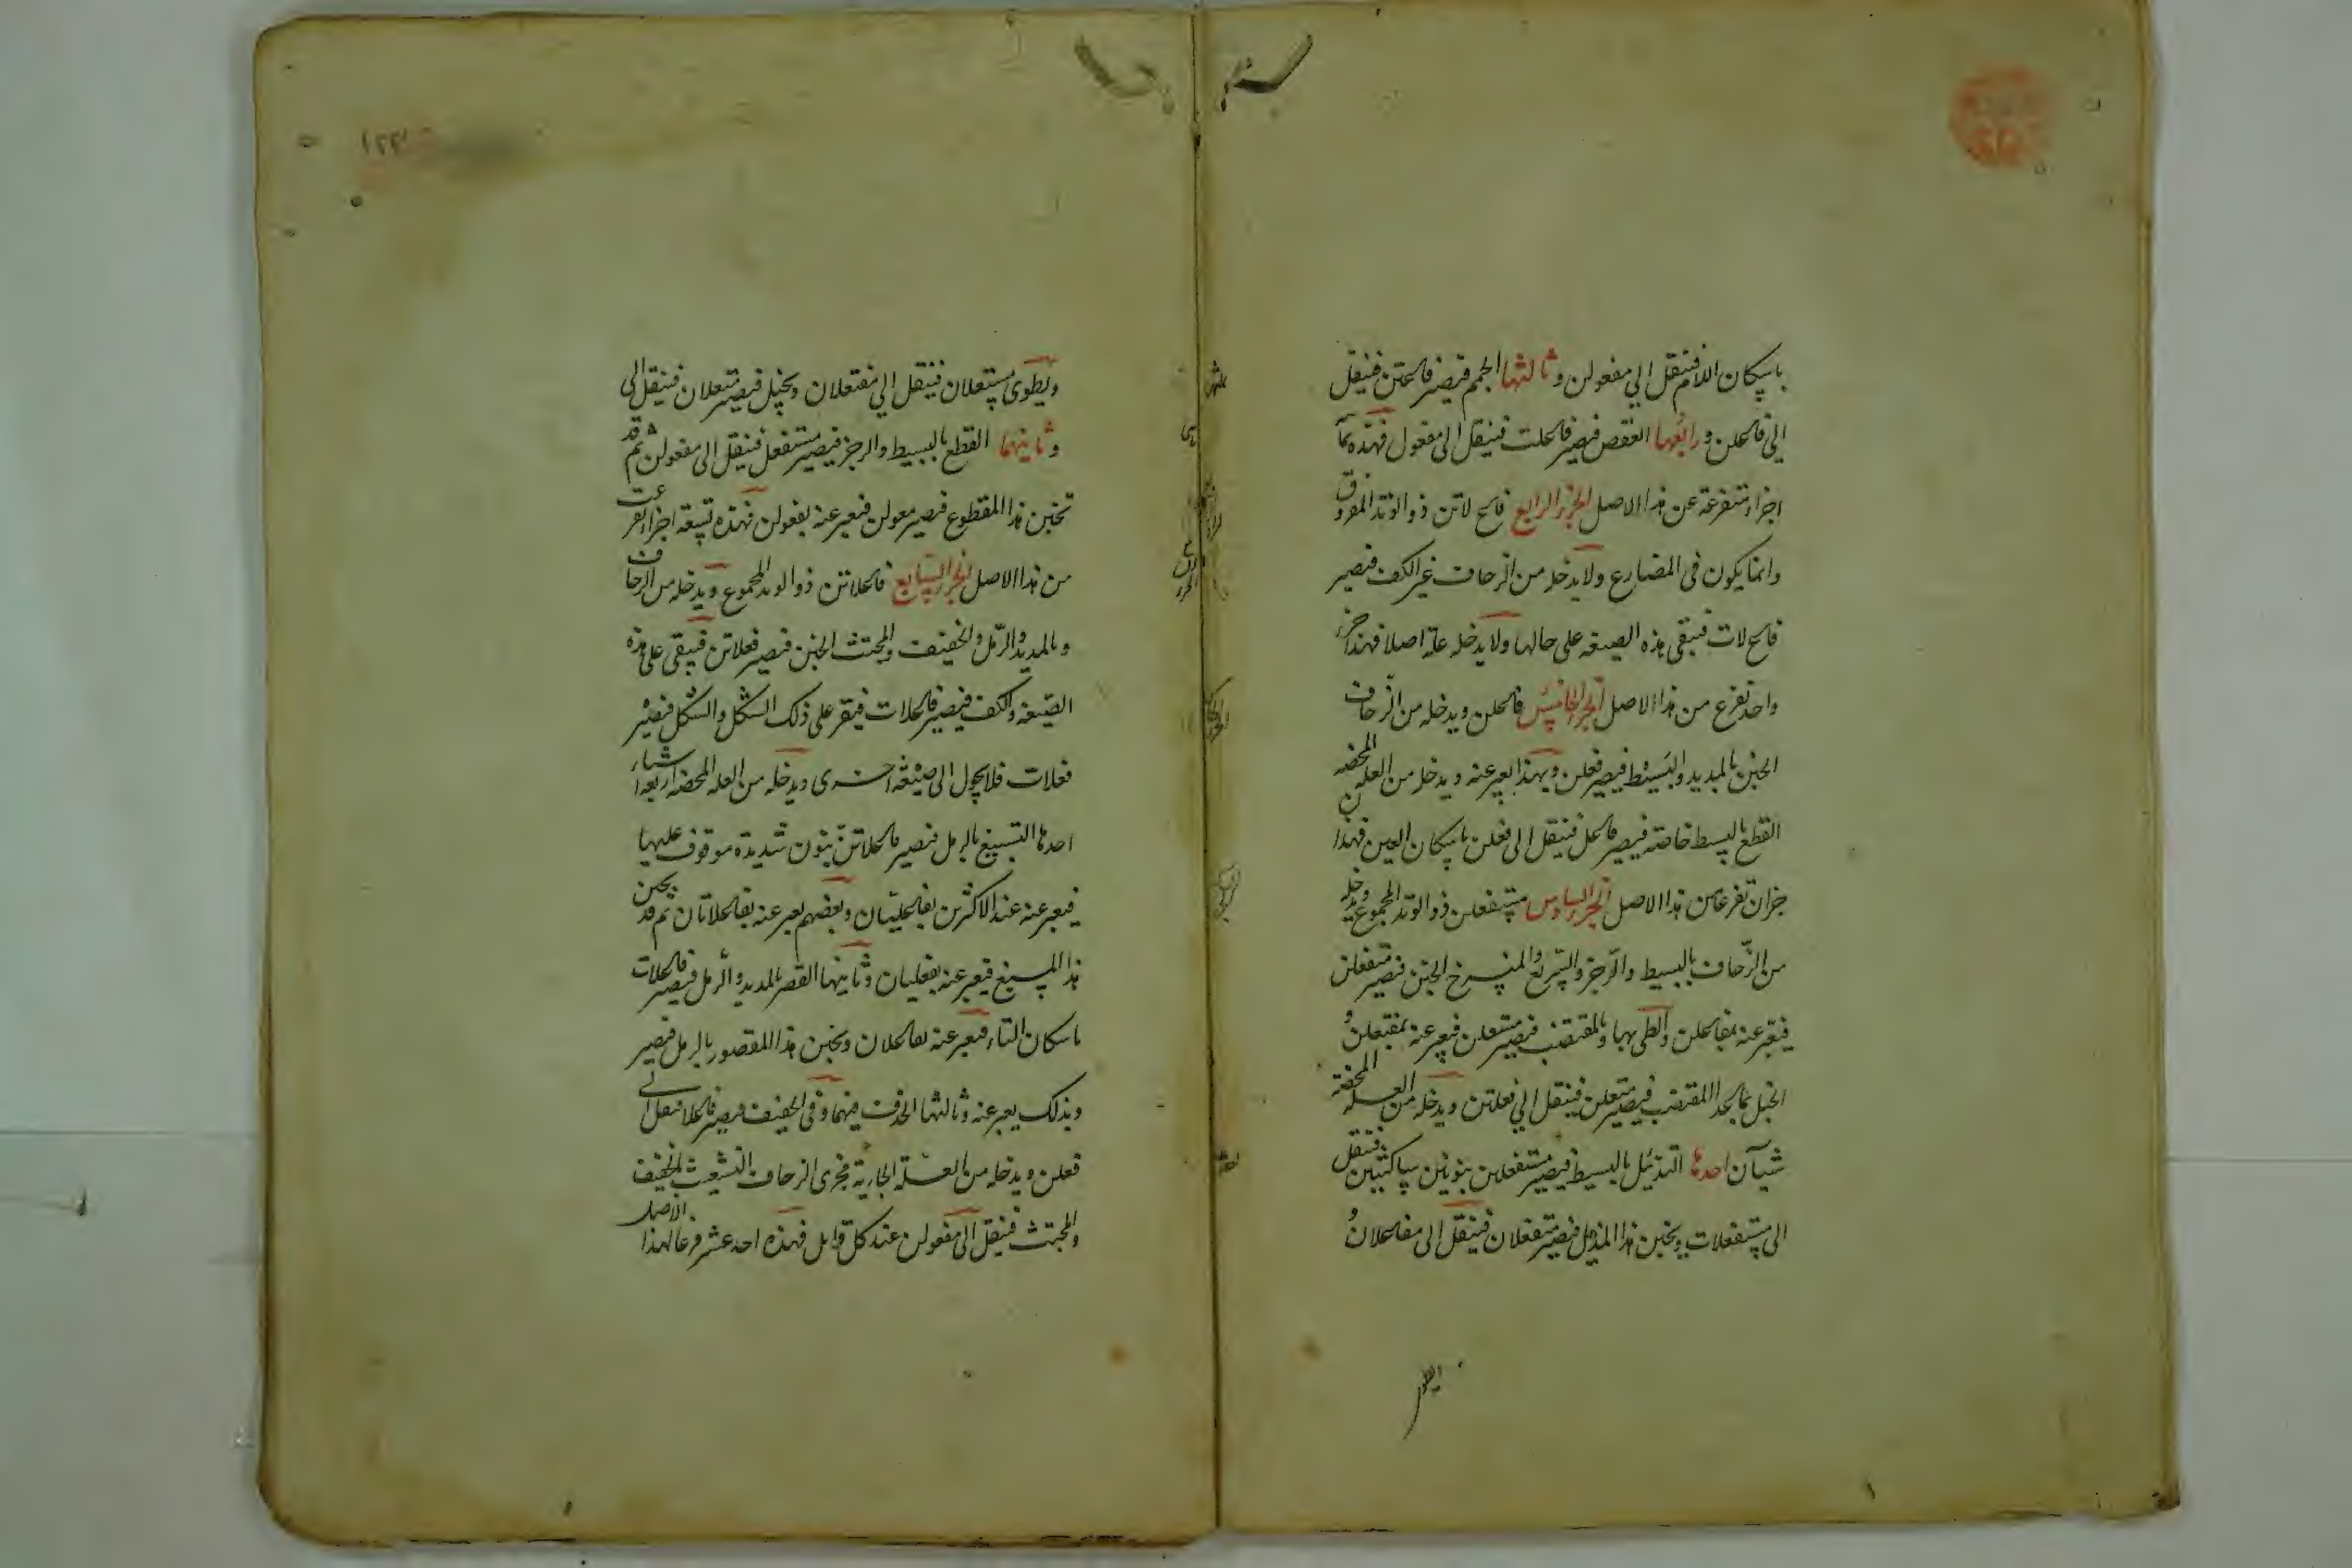 باسكان اللام فتنقل الى مفعولن وثالثها الجمم فيصير فاعتن فينقل
الى فاعلن ورابعها العقص فيصير فاعلت فينقل الى مفعول فهذه
اجزاء متفرعة عن هذا الاصل الجزء الرابع فاع لاتن ذو الوتد المفروق
وانما يكون فى المضارع ولا يدخله من الزحاف غير الكف فيصير
فاع لات فيبقى هذه الصيغه على حالها ولا يدخله علة اصلا فهذا جزء
واحد تفرع من هذا الاصل الجزء الخامس فاعلن ويدخله من الزحاف
الخبن بالمديد والبسيط فيصير فعلن وبهذا يعبر عنه ويدخله من العله المحضه
القطع بالبسيط خاصة فيصير فاعل فينقل الى فعلن باسكان العين فهذا
جزان تفرعا من هذا الاصل الجزء السادس مستفعلن ذو الوتد المجموع ويدخله
من الزحاف بالبسيط والرجز والسريع والمنسرح الخبن فيصير متفعلن
فيعبر عنه بمفاعلن والطى بها وبالمقتضب فيصير مستعلن فيعبر عنه بمفتعلن و
الخبل بما عدا المقتضب فيصير متعلن فينقل الى فعلتن ويدخله من العله المحضة
شيآن احدها التذئيل بالبسيط فيصير مستفعلن بنونين ساكنتين فتنقل
الى مستفعلات ويخبن هذا المذيل فيصير متفعلان فينقل الى مفاعلان و
ويطوى مستعلان فينقل الى مفتعلان ويخبل فيصير متعلان فينقل الى
وثانيهما القطع بالبسيط والرجز فيصير مستفعل فينقل الى مفعولن ثم قد
تخبن هذا المقطوع فيصير معولن فيعبر عنه بفعولن فهذه تسعة اجزاء تفرعت
من هذا الاصل الجزء السابع فاعلاتن ذو الوتد المجموع ويدخله من الزحاف
وبالمديد والرمل والخفيف والمجتث الخبن فيصير فعلاتن فيبقى على هذه
الصيغه والكف فيصير فاعلات فيقر على ذلك الشكل والشكل فيصير
فعلات فلا يحول الى صيغة اخرى ويدخله من العله المحضه اربعة اشياء
احدها التسبيغ بالرمل فيصير فاعلاتنّ بنون شديدة موقوف عليها
فيعبر عنه عند الاكثرين بفاعليتان وبعضهم يعبر عنه بفاعلاتان ثم قد يخبن
هذا المسبغ فيعبر عنه بفعليان وثانيها القصر بالمديد والرمل فيصير فاعلات
باسكان التاء فيعبر عنه بفاعلان ويخبن هذا المقصور بالرمل فيصير
وبذلك يعبر عنه وثالثها الحذف فيهما وفى الخفيف فيصير فاعلا فينقل الى
فعلن ويدخله من العلة الجارية مجرى الزحاف التشعيث بالخفيف
والمجتث فينقل الى مفعولن عند كل قايل فهذه احد عشر فرعا لهذا الاصل